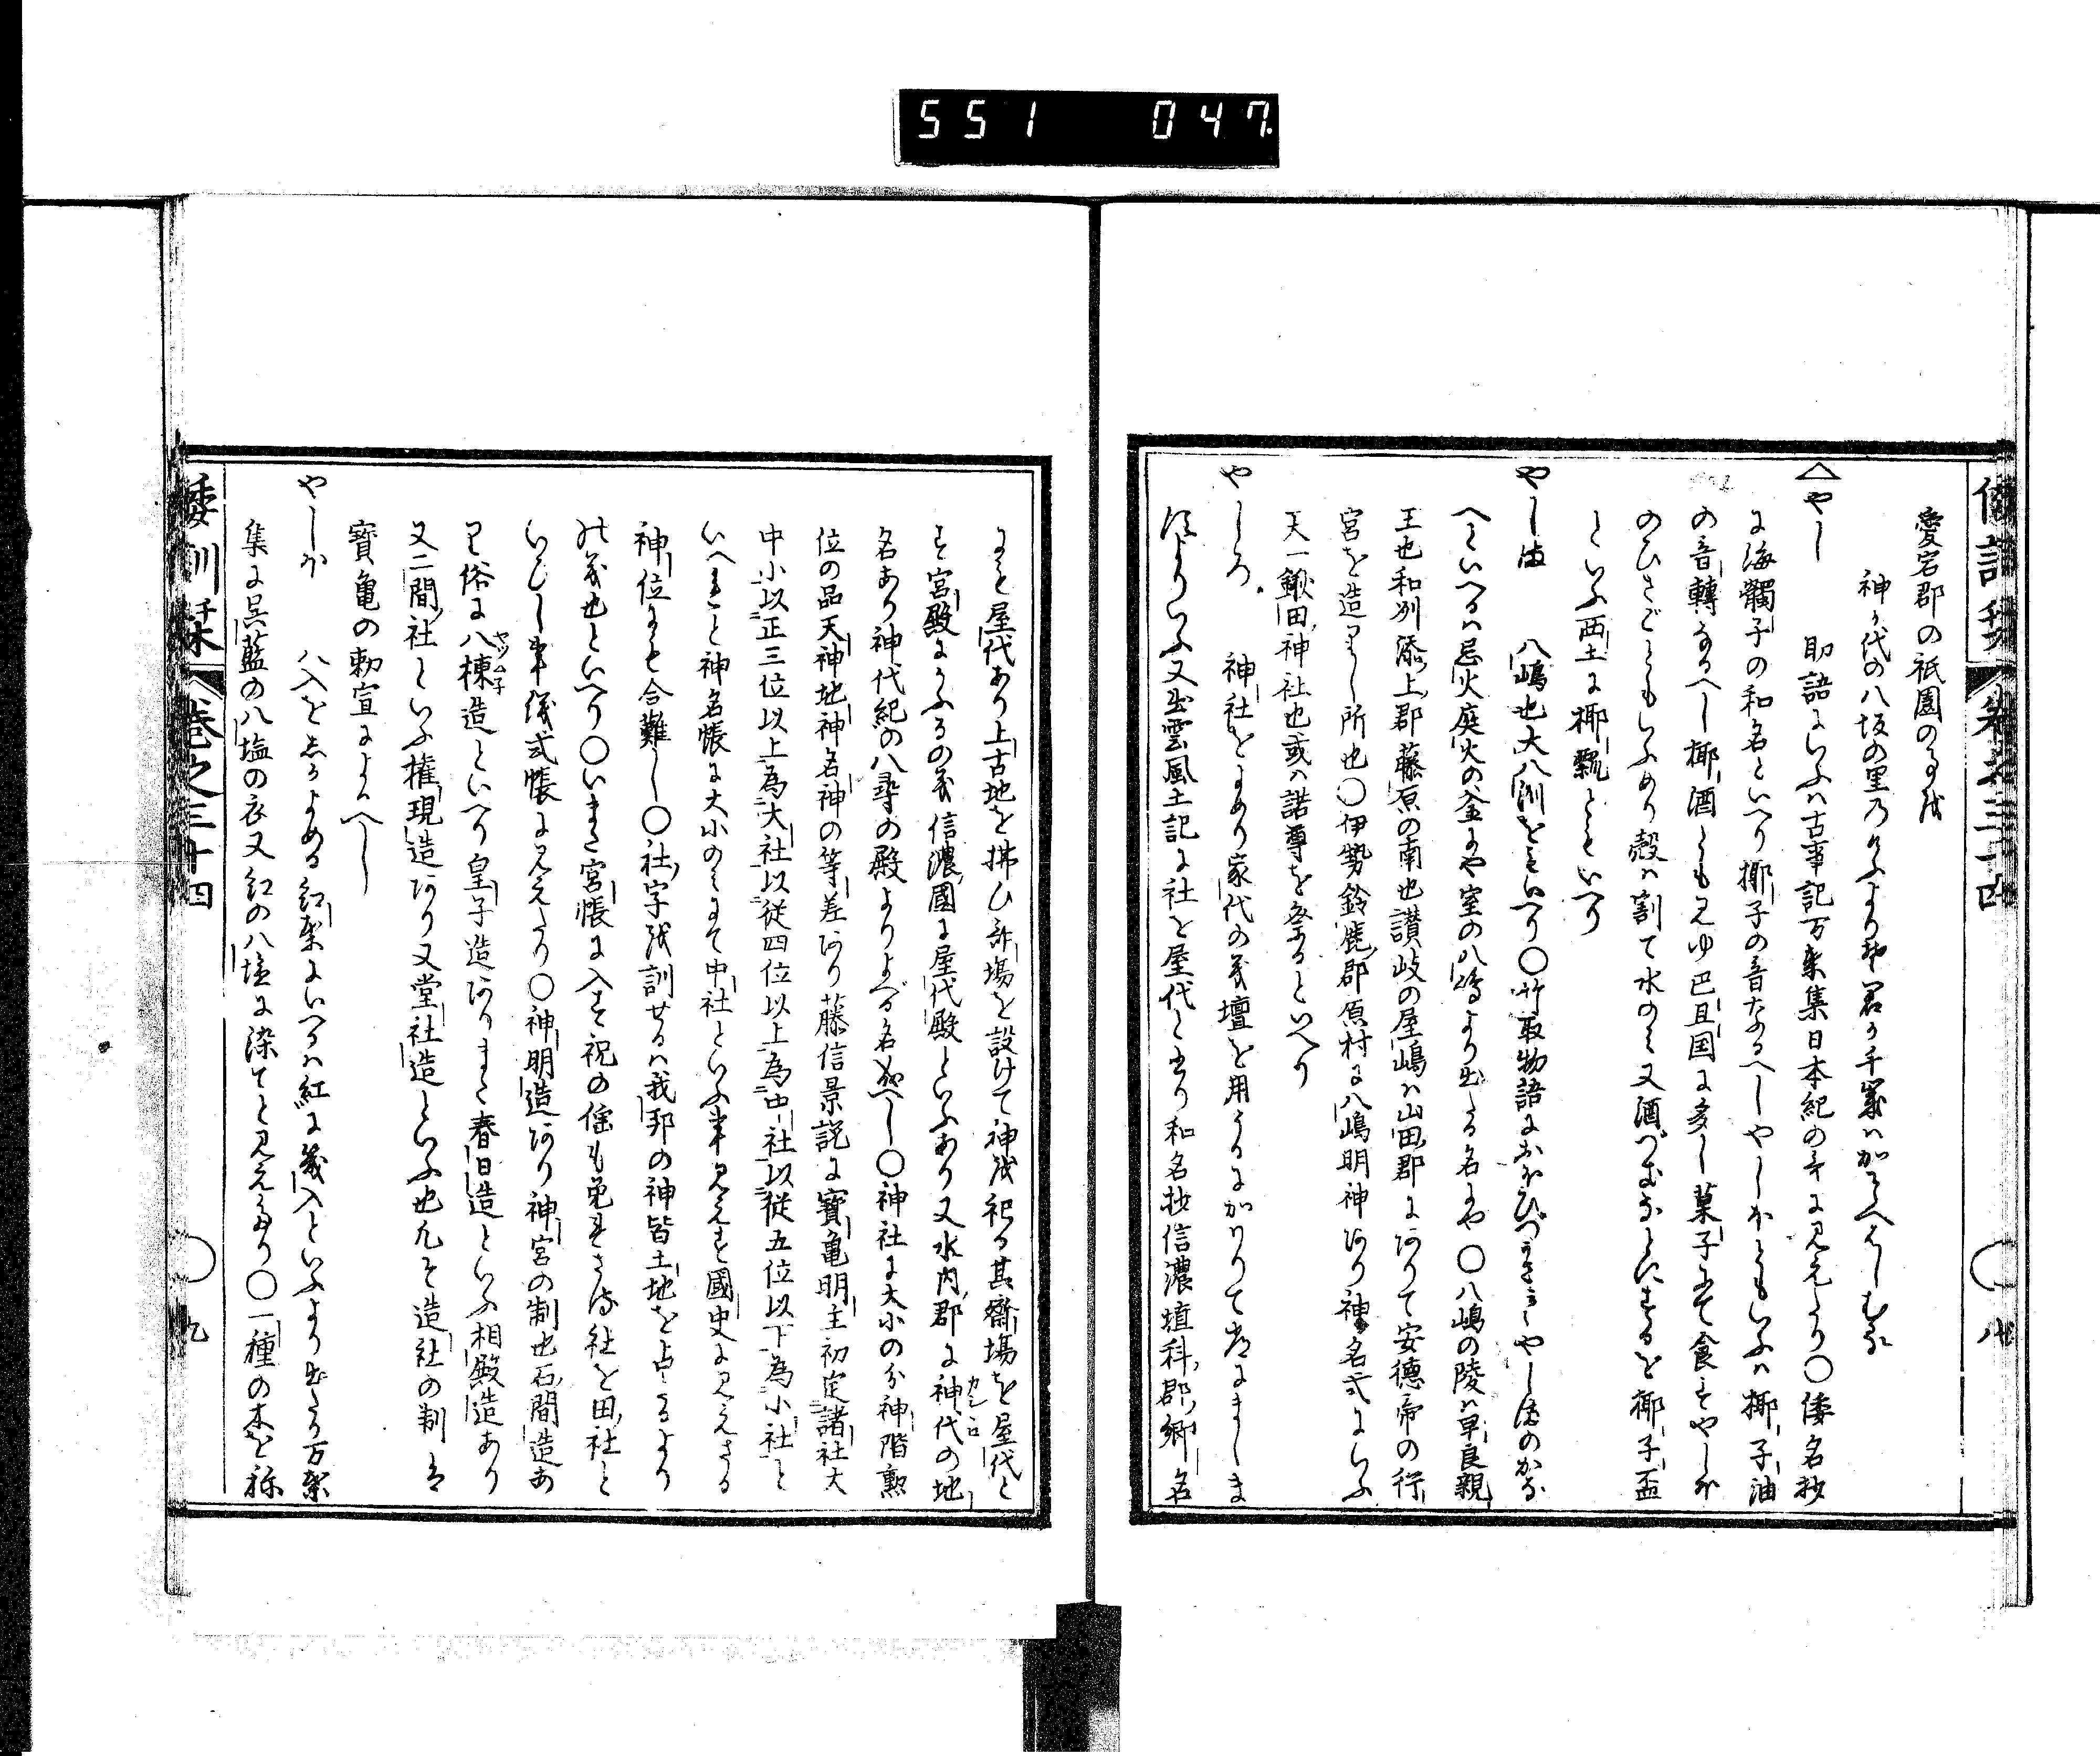 551 047
倭訓栞 卷之三十四 八
愛宕郡の祇園の事を
神の代の八坂の里のけふよりそ君か千歳はかそへはしむる
△やし 助語にいふは古事記万葉集日本紀の哥に見えたり〇倭名抄
に海髑子の和名といへり椰子の音なるへしやしほともいふは椰子油
の音轉なるへし椰酒ともみゆ巴且国に多し菓子にて食すやしほ
のひさごともいふめり殻は割て水のみ又酒づきなとにするを椰子盃
といふ西土に椰瓢ともいへり
やしま 八嶋也大八洲をもいへり〇竹取物語におほひづかさのやしまのかな
へといへるは忌火庭火の釜にや室の八嶋より出たる名にや〇八嶋の陵は早良親
王也和州添上郡藤原の南也讃岐の屋嶋は山田郡にありて安德帝の行
宮を造りし所也〇伊勢鈴鹿郡原村に八嶋明神あり神名式にいふ
天一鍬田神社也或は諾尊を祭るといへり
やしろ 神社をよめり家代の義壇を用うるにかはりて常にまします
よりいふ又出雲風土記に社を屋代と書り和名抄信濃埴科郡郷名
にも屋代あり上古地を拂ひ斎場を設けて神を祀る其齋場を屋代と
す宮殿にかふるの義信濃國に屋代殿といふあり又水内郡に神代の地
カシロ
名あり神代紀の八尋の殿よりよべる名成へし〇神社に大小の分神階勲
位の品天神地神名神の等差あり藤信景説に寶亀明主初定諸社大
中小以正三位以上為大社以従四位以上為中社以従五位以下為小社と
いへれと神名帳に大小のみにて中社といふ事見えす國史に見えたる
神位にも合難し〇社字を訓せるは我邦の神皆土地を占るより
の義也といへり〇いまた宮帳に入す祝の傜も免れさる社を田社と
いひし事儀式帳に見えたり〇神明造あり神宮の制也石間造あ
り俗に八棟造といへり皇子造ありまた春日造といふ相殿造あり
ヤツムネ
又二間社といふ権現造あり又堂社造といふ也凡そ造社の制は
寶亀の勅宣によるへし
やしほ 八入をしかよめる紅葉にいへるは紅に幾入といふより出たり万葉
集に呉藍の八塩の衣又紅の八塩に染てと見えたり〇一種の木を称
倭訓栞 卷之三十四 九